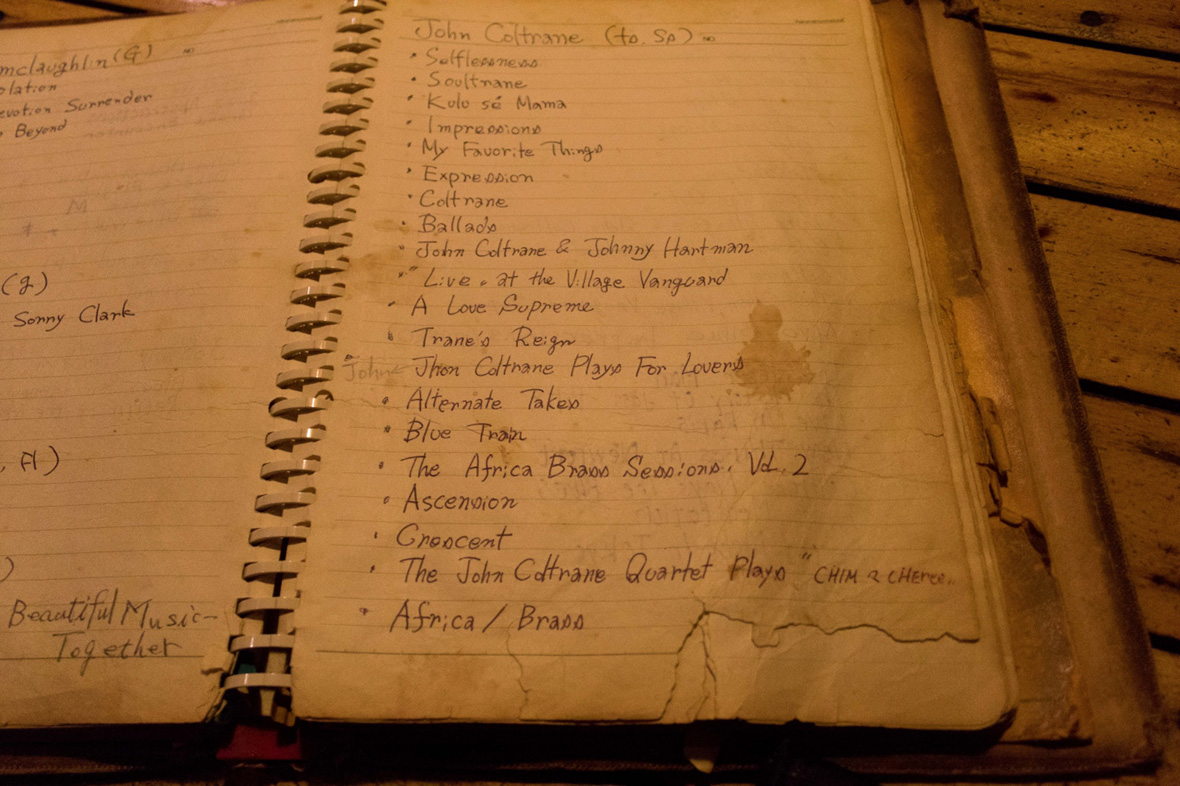 mclaughlin (G)
olation
evotion Surrender
Beyond
(g)
Sonny Clark
, A)
)
Beautiful Music-
Together
John Coltrane (ts. ss)
• Selflessness
• Soultrane
• Kulu sé Mama
• Impressions
• My Favorite Things
• Expression
• Coltrane
• Ballads
• John Coltrane & Johnny Hartman
• "Live" at the Village Vanguard
• A Love Supreme
• Trane's Reign
John ← Jhon Coltrane Plays For Lovers
• Alternate Takes
• Blue Train
• The Africa Brass Sessions, Vol. 2
• Ascension
• Crescent
• The John Coltrane Quartet Plays "CHIM
• Africa / Brass